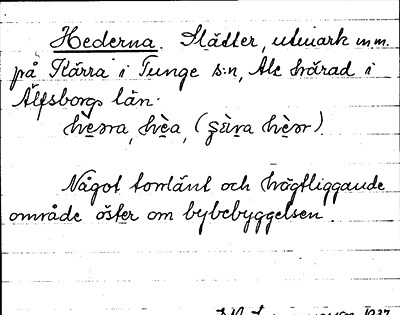 Hederna. Slätter, utmark m.m.
på Kärra i Tunge s:n, Ale härad i
Älfsborgs län.
hèəra, hèa, (ʂɛ̀ra hèər)
Något torrlänt och högtliggande
område öster om bybebyggelsen.
1937